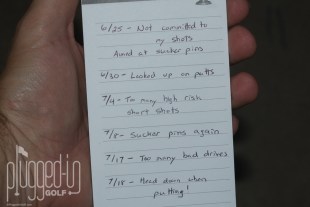 6/25 - Not committed to
my shots
Aimed at sucker pins
6/30 - Looked up on putts
7/4 - Too many high risk
short shots
7/8 - Sucker pins again
7/17 - Too many bad drives
7/18 - Head down when
putting!
plugged-in
GOLF